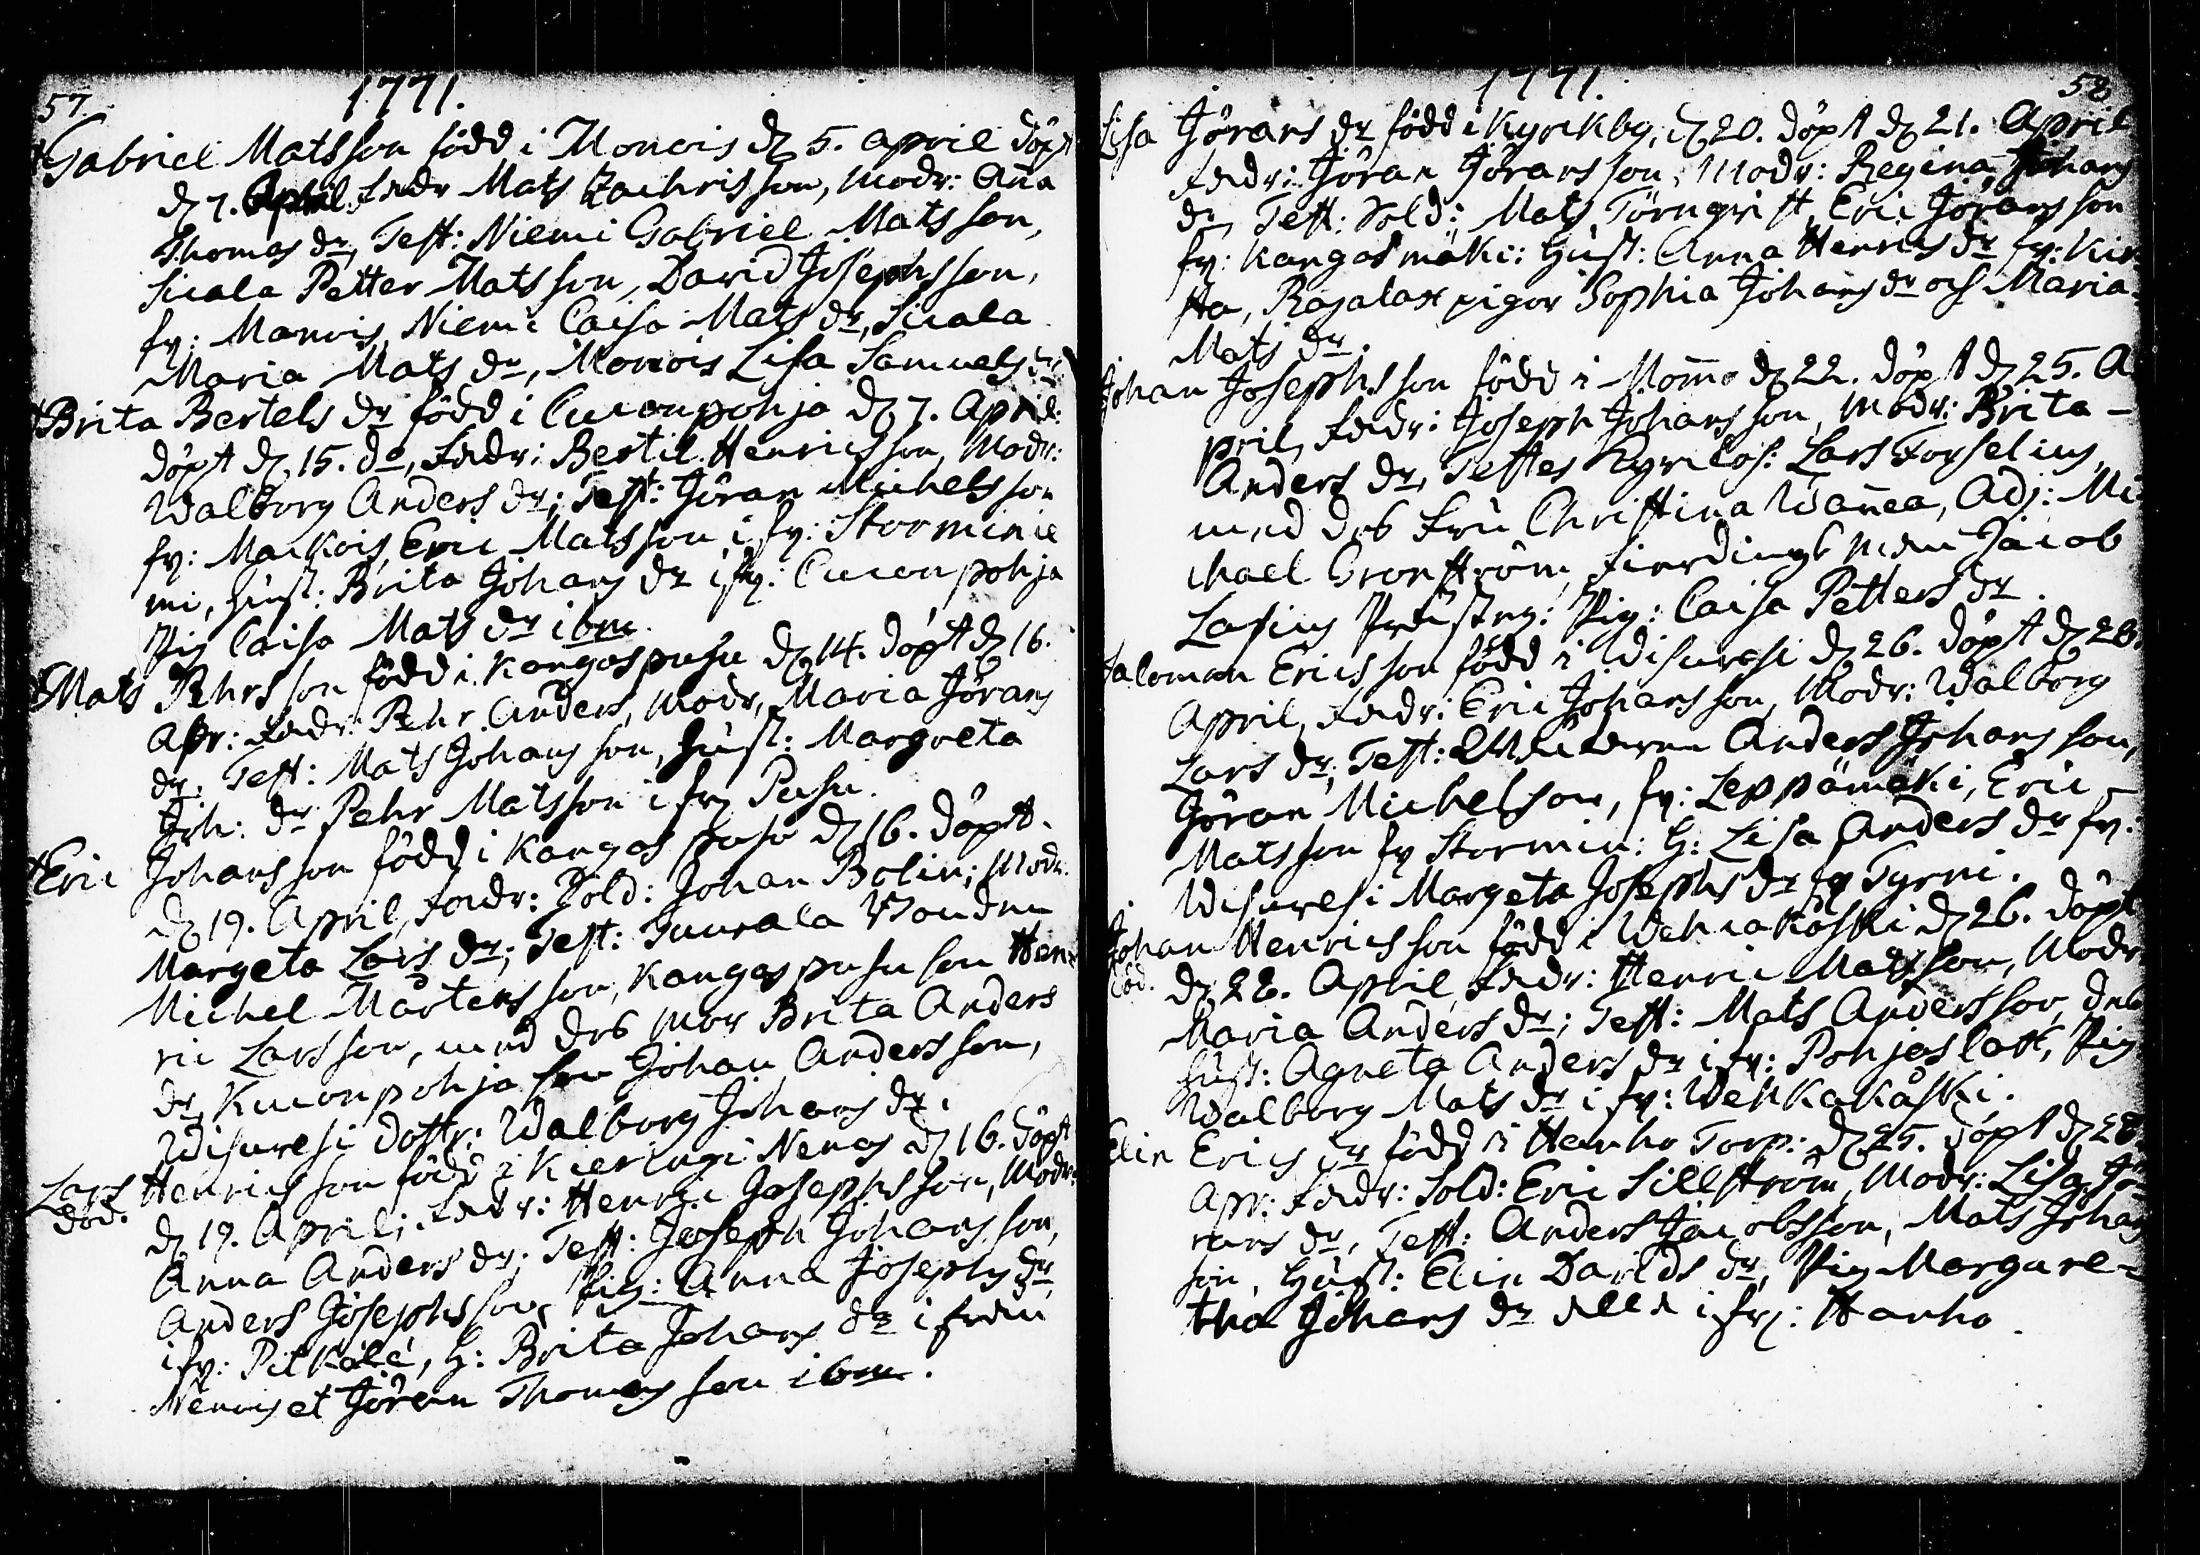 57.
1771.
†Gabriel Matsson född i Monois d 5. april döpt
d 7. April. Fadr Mats Zachrisson, Modr: Aña
Thomas dr, Test: Niemi Gabriel Matsson,
Sicala Petter Matsson, David Josephsson,
fr: Manois, Niemi Caisa Mats dr, Sicala
Maria Mats dr, Monois Lisa Samuels dr
†Brita Bertels dr född i Cuconpohja d 7. April:
döpt d 15. do, Fadr: Bertil Henricsson, Modr:
Walborg Anders dr; Test: Jöran Michelsson
fr: Mackois, Eric Matsson i fr: Storminie
mi, hust: Brita Johans dr i fr: Cuconpohja
Pig Caisa Mats dr ibm.
†Mats Pehrsson född i Kangaspusu d 14. döpt d 16.
Apr: Fadr: Pehr Anders, Modr, Maria Jörans
dr, Test: Mats Johansson, Hust: Margreta
Joh: dr Pehr Matsson i fr Pusu.
†Eric Johansson född i Kangaspusu d 16. döpt
d 19. April, Fadr: Sold: Johan Bolin; Modr.
Margeta Lars dr; Test: Tuurala Bonden
Michel Mårtensson, Kangaspusu son Hen-
ric Larsson, med des mor Brita Anders
dr, Kuconpohja son Johan Andersson,
Wisuresi dottr: Walborg Johans dr.
Lars Henricsson född i Kieringi Nenas d 16. döpt
död. d 19. April; Fadr: Henric Josephsson, Modr:
Anna Anders dr; Test: Joseph Johansson,
Anders Josephsson, Pig: Anna Josephs dr
i fr: Pitkälä, H: Brita Johans dr i från
Nenois et Jöran Thomasson ibm.
58
1771.
Lisa Jörans dr född i Kyrkby, d 20. döpt d 21. April
Fadr: Jöran Jöransson, Modr: Regina Johans
dr, Test: Sold: Mats Törnqvist, Eric Jöransson
fr: Kangasmäki: Hust: Anna Henrics dr fr: Kir-
sta, Rajalax pigor Sophia Johans dr och Maria
Mats dr.
Johan Josephsson född i Moño d 22. döpt d 25. A-
pril, Fadr: Joseph Johansson, Modr: Brita
Anders dr, Testes Kyrkloh: Lars Forselius,
med des Fru Christina Wañea, Adj: Mi
chael Gronström, Fierdingsman Jacob
Lasius Prustny: Pig: Caisa Petters dr.
Salomon Ericsson född i Wisuresi d 26. döpt d 28.
April, Fadr: Eric Johansson, Modr: Walborg
Lars dr, Test: Anders Johansson,
Jöran Michelson, fr: Leppämäki, Eric
Matsson fr Stormin: H: Lisa Anders dr fr:
Wisuresi Margeta Josephs dr fr Tyrni.
Johan Henricsson född i Wehcakoski d 26. döpt
död. d 28. April, Fadr: Henric Matsson, Modr
Maria Anders dr; Test: Mats Andersson, des
hust: Agneta Anders dr i fr: Pohjaslax, Pig
Walborg Mats dr i fr: Wehkakåski.
Elin Erics dr född i Hanho Torp: d 25. döpt d 28.
Apr: Fadr: Sold: Eric Sillström, Modr: Lisa Jö-
rans dr, Test: Anders Jacobsson, Mats Johans
son, Hust: Elin Davids dr, Pig Margare-
tha Johans dr alla i fr: Hanho.